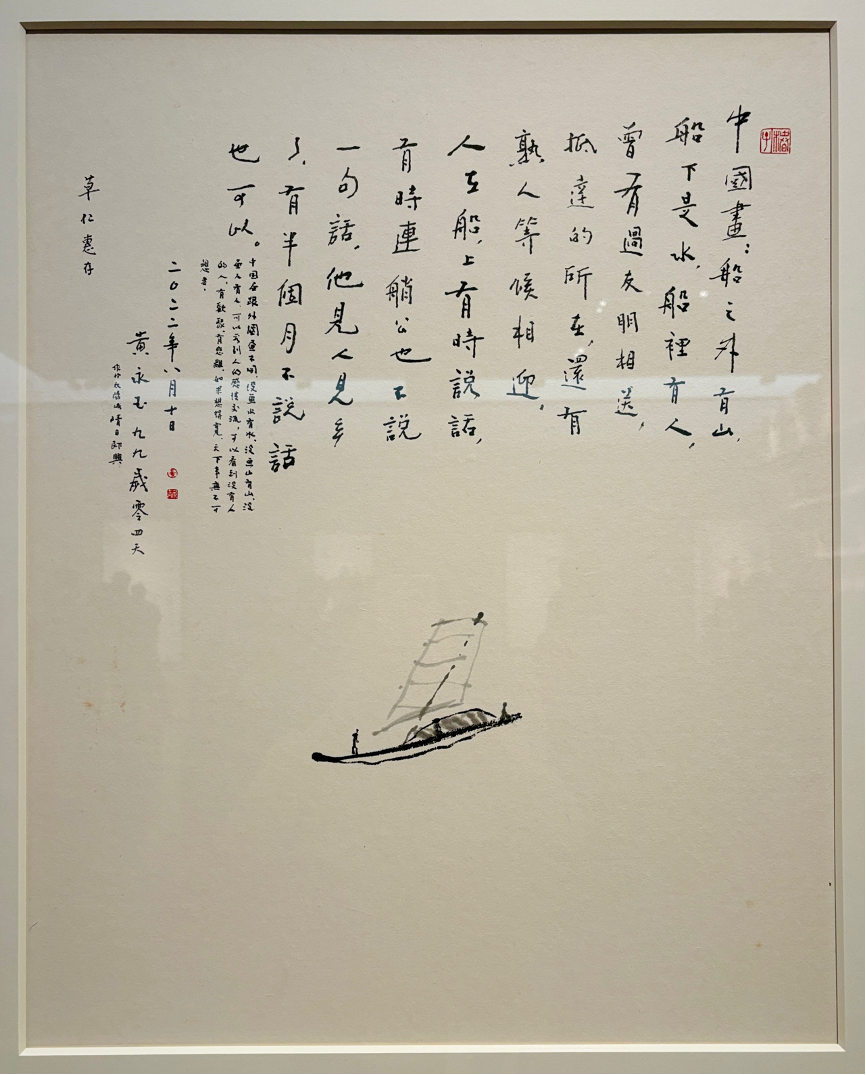 中國畫：船之外有山，
船下是水，船裡有人，
曾有過友朋相送，
抵達的所在，還有
熟人等候相迎，
人在船上，有時說話，
有時連艄公也不說
一句話，他見人見多
了，有半個月不說話
也可以。
中国画跟外國画不同，没画水有水，没画山有山，没
画人有人，可以看到人的感情交流，可以看到没有人
的人，有歡聚，有悲離，如果想得寬，天下事無不可
想者。
二〇二二年八月十日
黄永玉九九歲零四天
作於太陽城晴日即興
草仁惠存